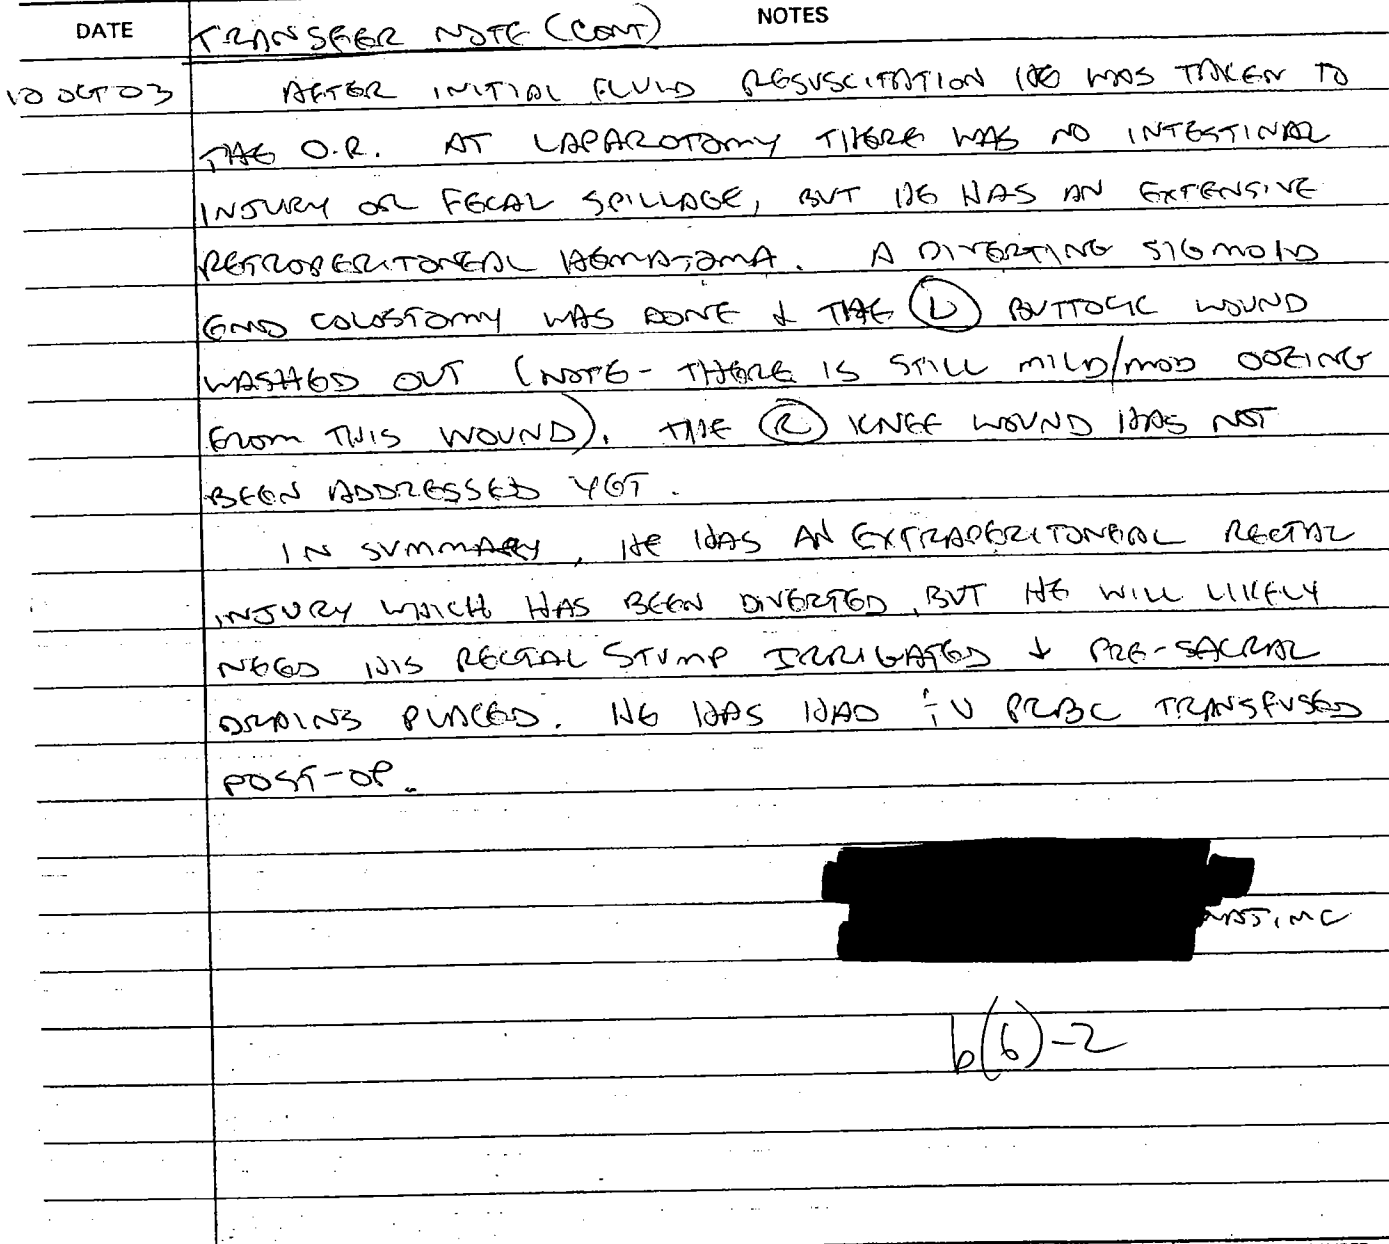 DATE NOTES
TRANSFER NOTE (CONT)
10 OCT 03 AFTER INITIAL FLUID RESUSCITATION HE WAS TAKEN TO
THE O.R. AT LAPAROTOMY THERE WAS NO INTESTINAL
INJURY OR FECAL SPILLAGE, BUT HE HAS AN EXTENSIVE
RETROPERITONEAL HEMATOMA. A DIVERTING SIGMOID
END COLOSTOMY WAS DONE & THE (L) BUTTOCK WOUND
WASHED OUT (NOTE - THERE IS STILL MILD/MOD OOZING
FROM THIS WOUND). THE (R) KNEE WOUND HAS NOT
BEEN ADDRESSED YET.
IN SUMMARY, HE HAS AN EXTRAPERITONEAL RECTAL
INJURY WHICH HAS BEEN DIVERTED, BUT HE WILL LIKELY
NEED HIS RECTAL STUMP IRRIGATED & PRE-SACRAL
DRAINS PLACED. HE HAS HAD U PRBC TRANSFUSED
POST-OP.
MC
b(6)-2